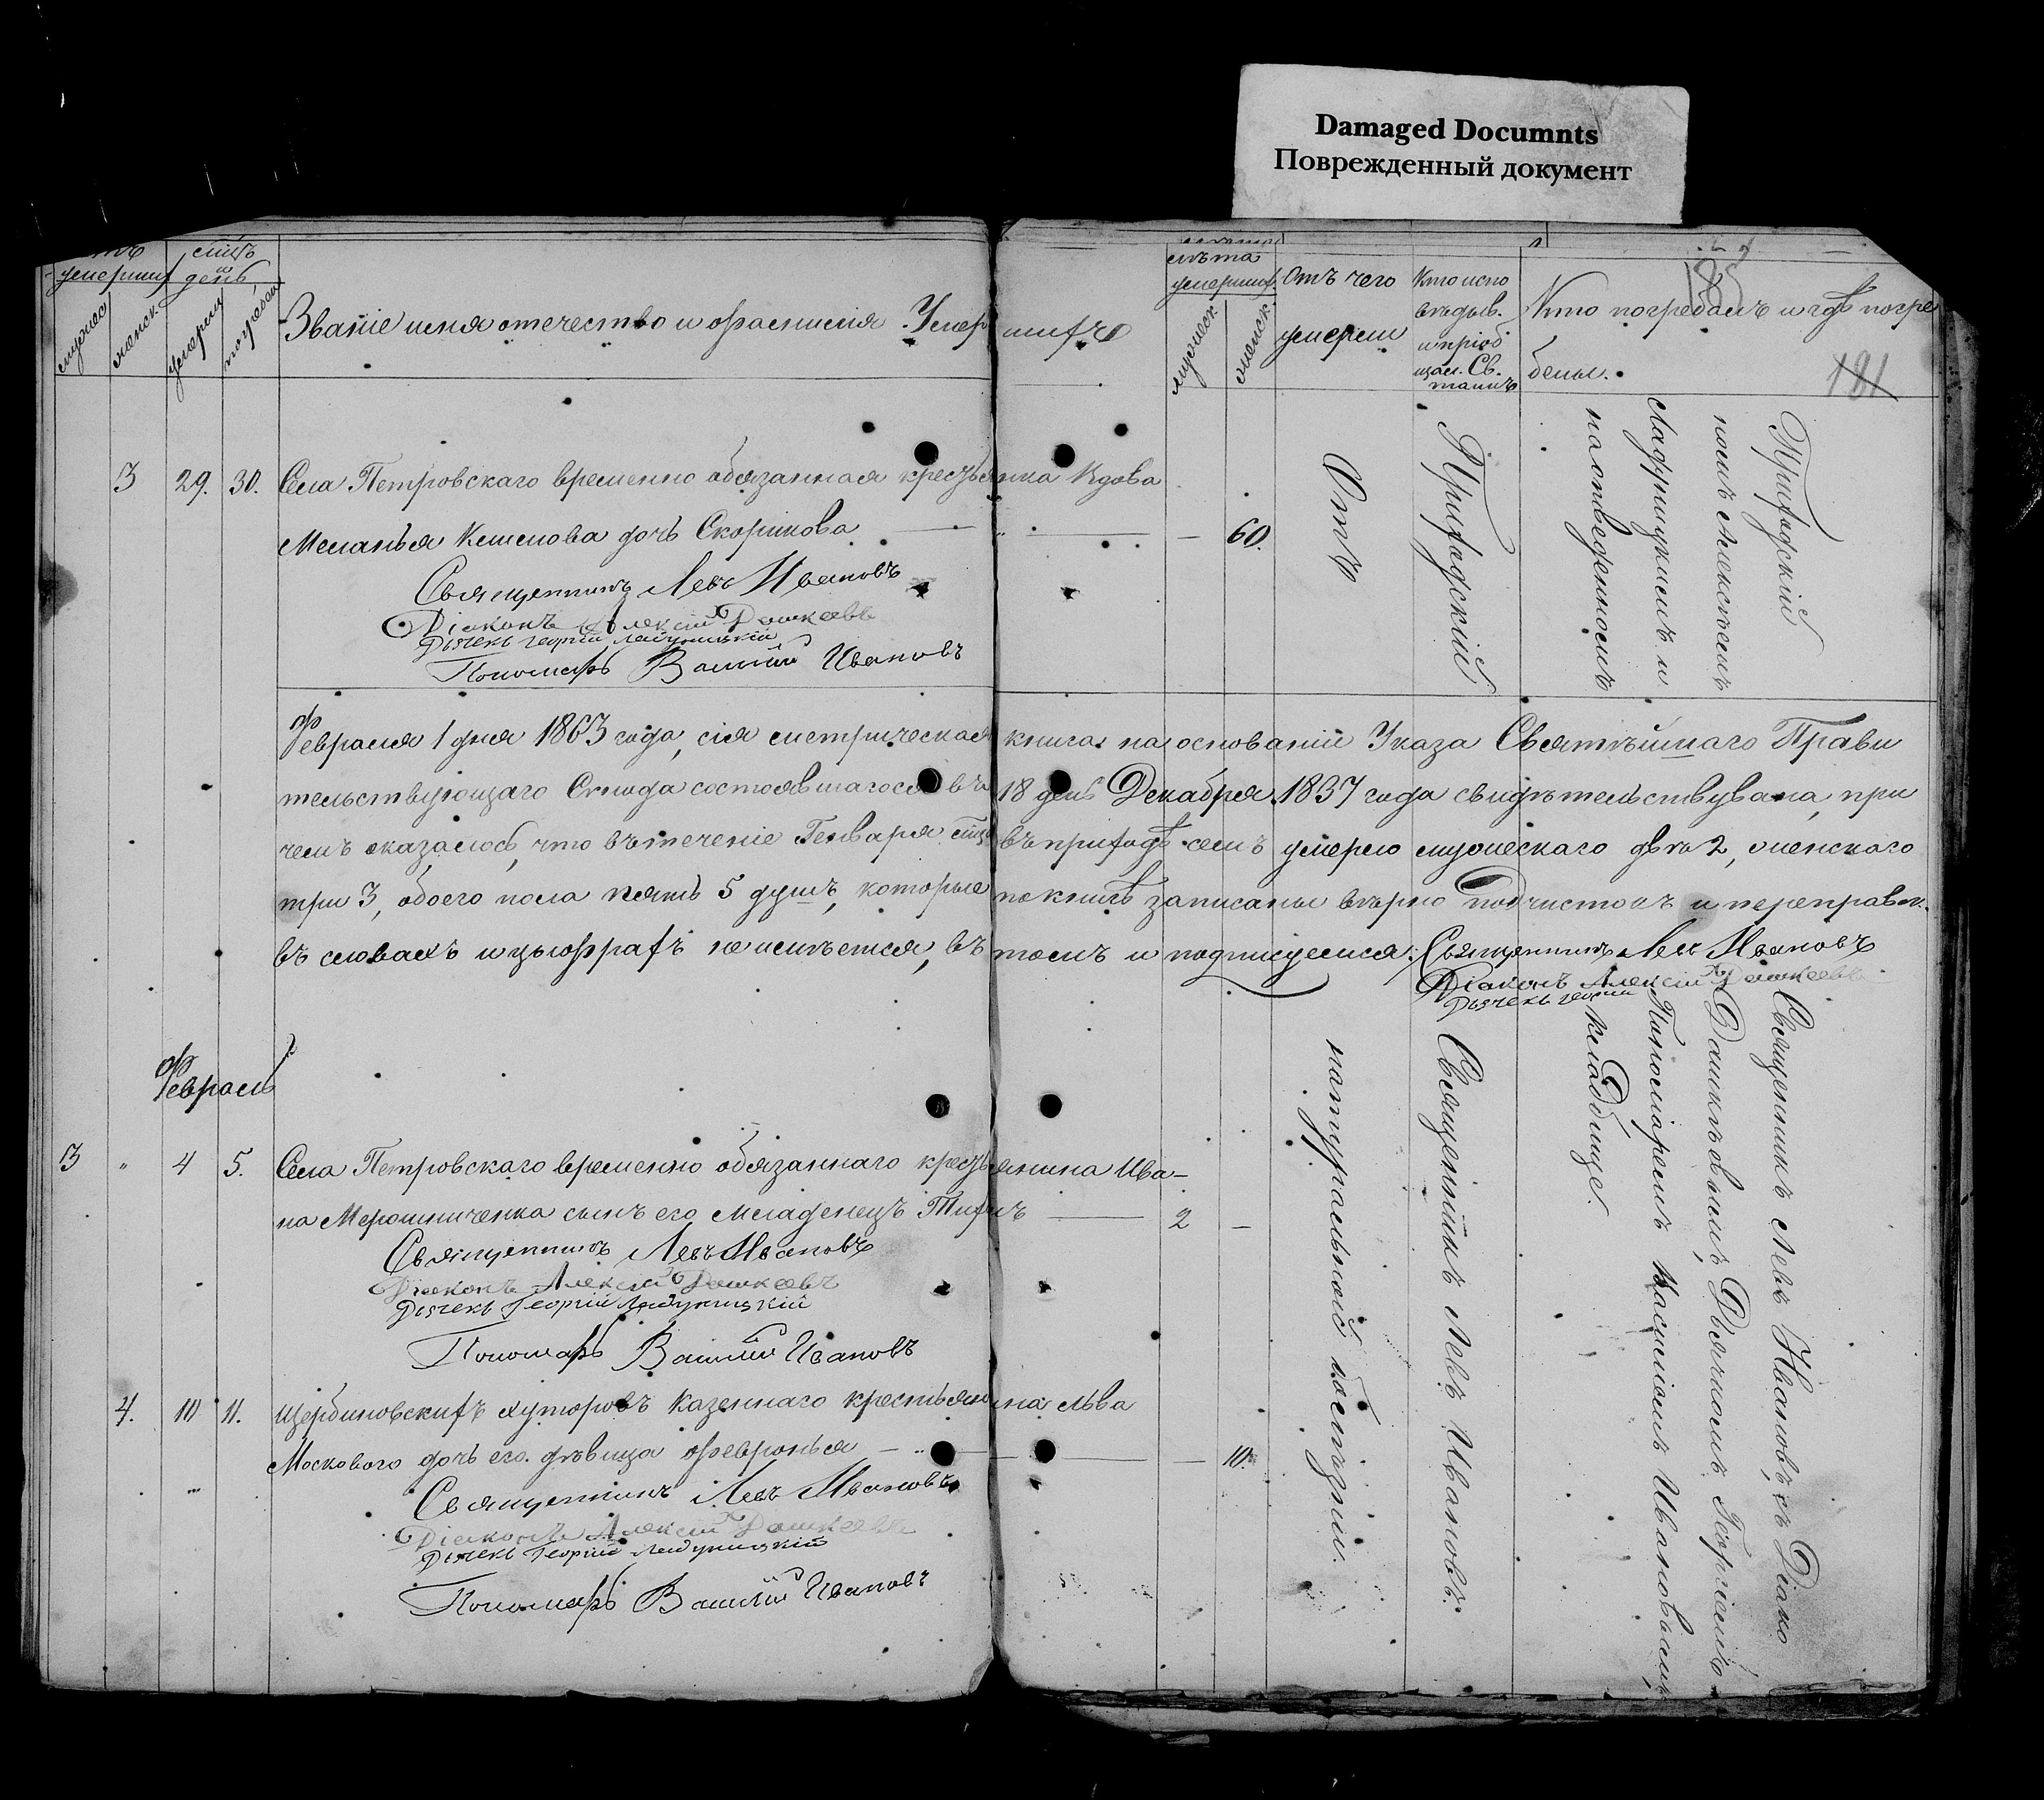 Damaged Documnts
Поврежденный документ
185
181
умершихъ
день
мужеск.
женск.
умерши
погребен
Званіе имя отечество и фамилія Умершихъ
лѣта
умершихъ
мужеск.
женск.
Отъ чего
умерли
Кто испо
вѣдыв.
и пріоб
щал. Св.
таинъ
Кто погребалъ и гдѣ погре
бены.
3 29. 30. Села Петровскаго временно обязанная крестьянка вдова
Меланья Климова дочь Скорикова — 60.
Священникъ Левъ Ивановъ
Діаконъ Алексій Дашкевъ
Дьячекъ Георгій Ладушицкій
Пономарь Василій Ивановъ
Отъ
Приходскій
Приходскій
номъ Алексѣемъ
на отведенномъ
Февраля 1 дня 1863 года, сія метрическая книга на основаніи Указа Святѣйшаго Прави
тельствующаго Синода состоявшагося въ 18 день Декабря 1837 года свидѣтельствувана, при
чемъ оказалось, что въ теченіе Генваря мца въ приходѣ семъ умерло мужескаго два 2, женскаго
три 3, обоего пола пять 5 душъ, которые по книгѣ записаны вѣрно подчистокъ и переправок.
въ словахъ и цыфрахъ не имѣется, въ томъ и подписуемся: Священникъ Левъ Ивановъ
Діаконъ Алексій Дашкевъ
Дьячекъ Георгій
Февраль
3 " 4 5. Села Петровскаго временно обязаннаго крестьянина Ива-
на Мерошниченка сынъ его младенецъ Тихонъ 2 —
Священникъ Левъ Ивановъ
Діаконъ Алексій Дашкевъ
Дьячекъ Георгій Ладушицкій
Пономарь Василій Ивановъ
4. 10 11. Щербиновскихъ хуторовъ казеннаго крестьянина Льва
Москового дочь его дѣвица Февронья — 10.
Священникъ Левъ Ивановъ
Діаконъ Алексій Дашкевъ
Дьячекъ Георгій Ладушицкій
Пономарь Василій Ивановъ
натуральной болѣзни.
Священникъ Левъ Ивановъ.
Священникъ Левъ Ивановъ, съ Діако
Дашкѣвымъ, Дьячкомъ Георгіемъ
Пономаремъ Василіемъ Ивановымъ,
кладбище.